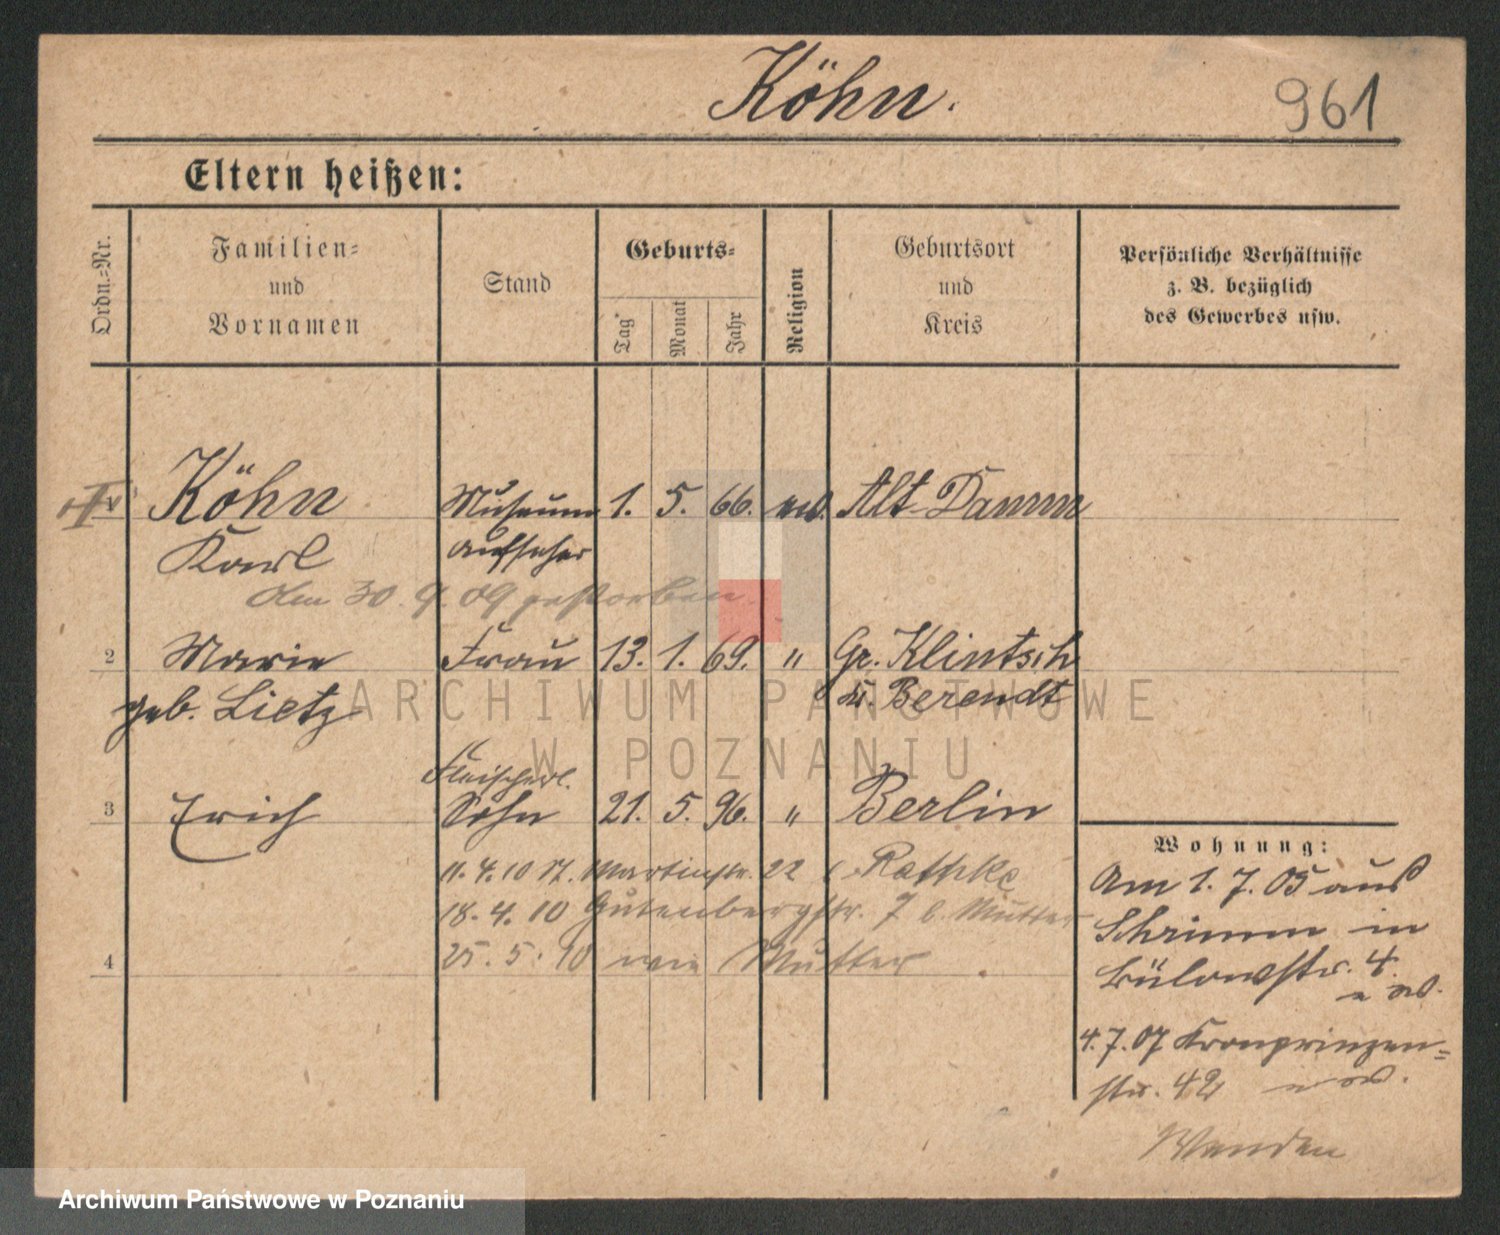 Köhn.
961
Eltern heißen:
Ordn.=Nr.
Familien=
und
Vornamen
Stand
Geburts=
Tag
Monat
Jahr
Religion
Geburtsort
und
Kreis
Persönliche Verhältnisse
z. B. bezüglich
des Gewerbes usw.
Köhn Museum 1. 5. 66. Alt-Damm
Karl Aufseher
Am 30. 9. 09 gestorben
2 Marie Frau 13. 1. 69. " Gr. Klintsch
geb. Lietz Kr. Berendt
Fleischerl.
3 Erich Sohn 21. 5. 96. " Berlin
11. 4. 10 St. Martinstr. 22 b. Rathke
18. 4. 10 Gutenbergstr. 7 b. Mutter
4 25. 5. 10 wie Mutter
Wohnung:
Am 1. 7. 05 aus
Schrimm in
Bülowstr. 4.
4. 7. 07 Kronprinzen=
str. 42
Wenden
ARCHIWUM PAŃSTWOWE
W POZNANIU
Archiwum Państwowe w Poznaniu